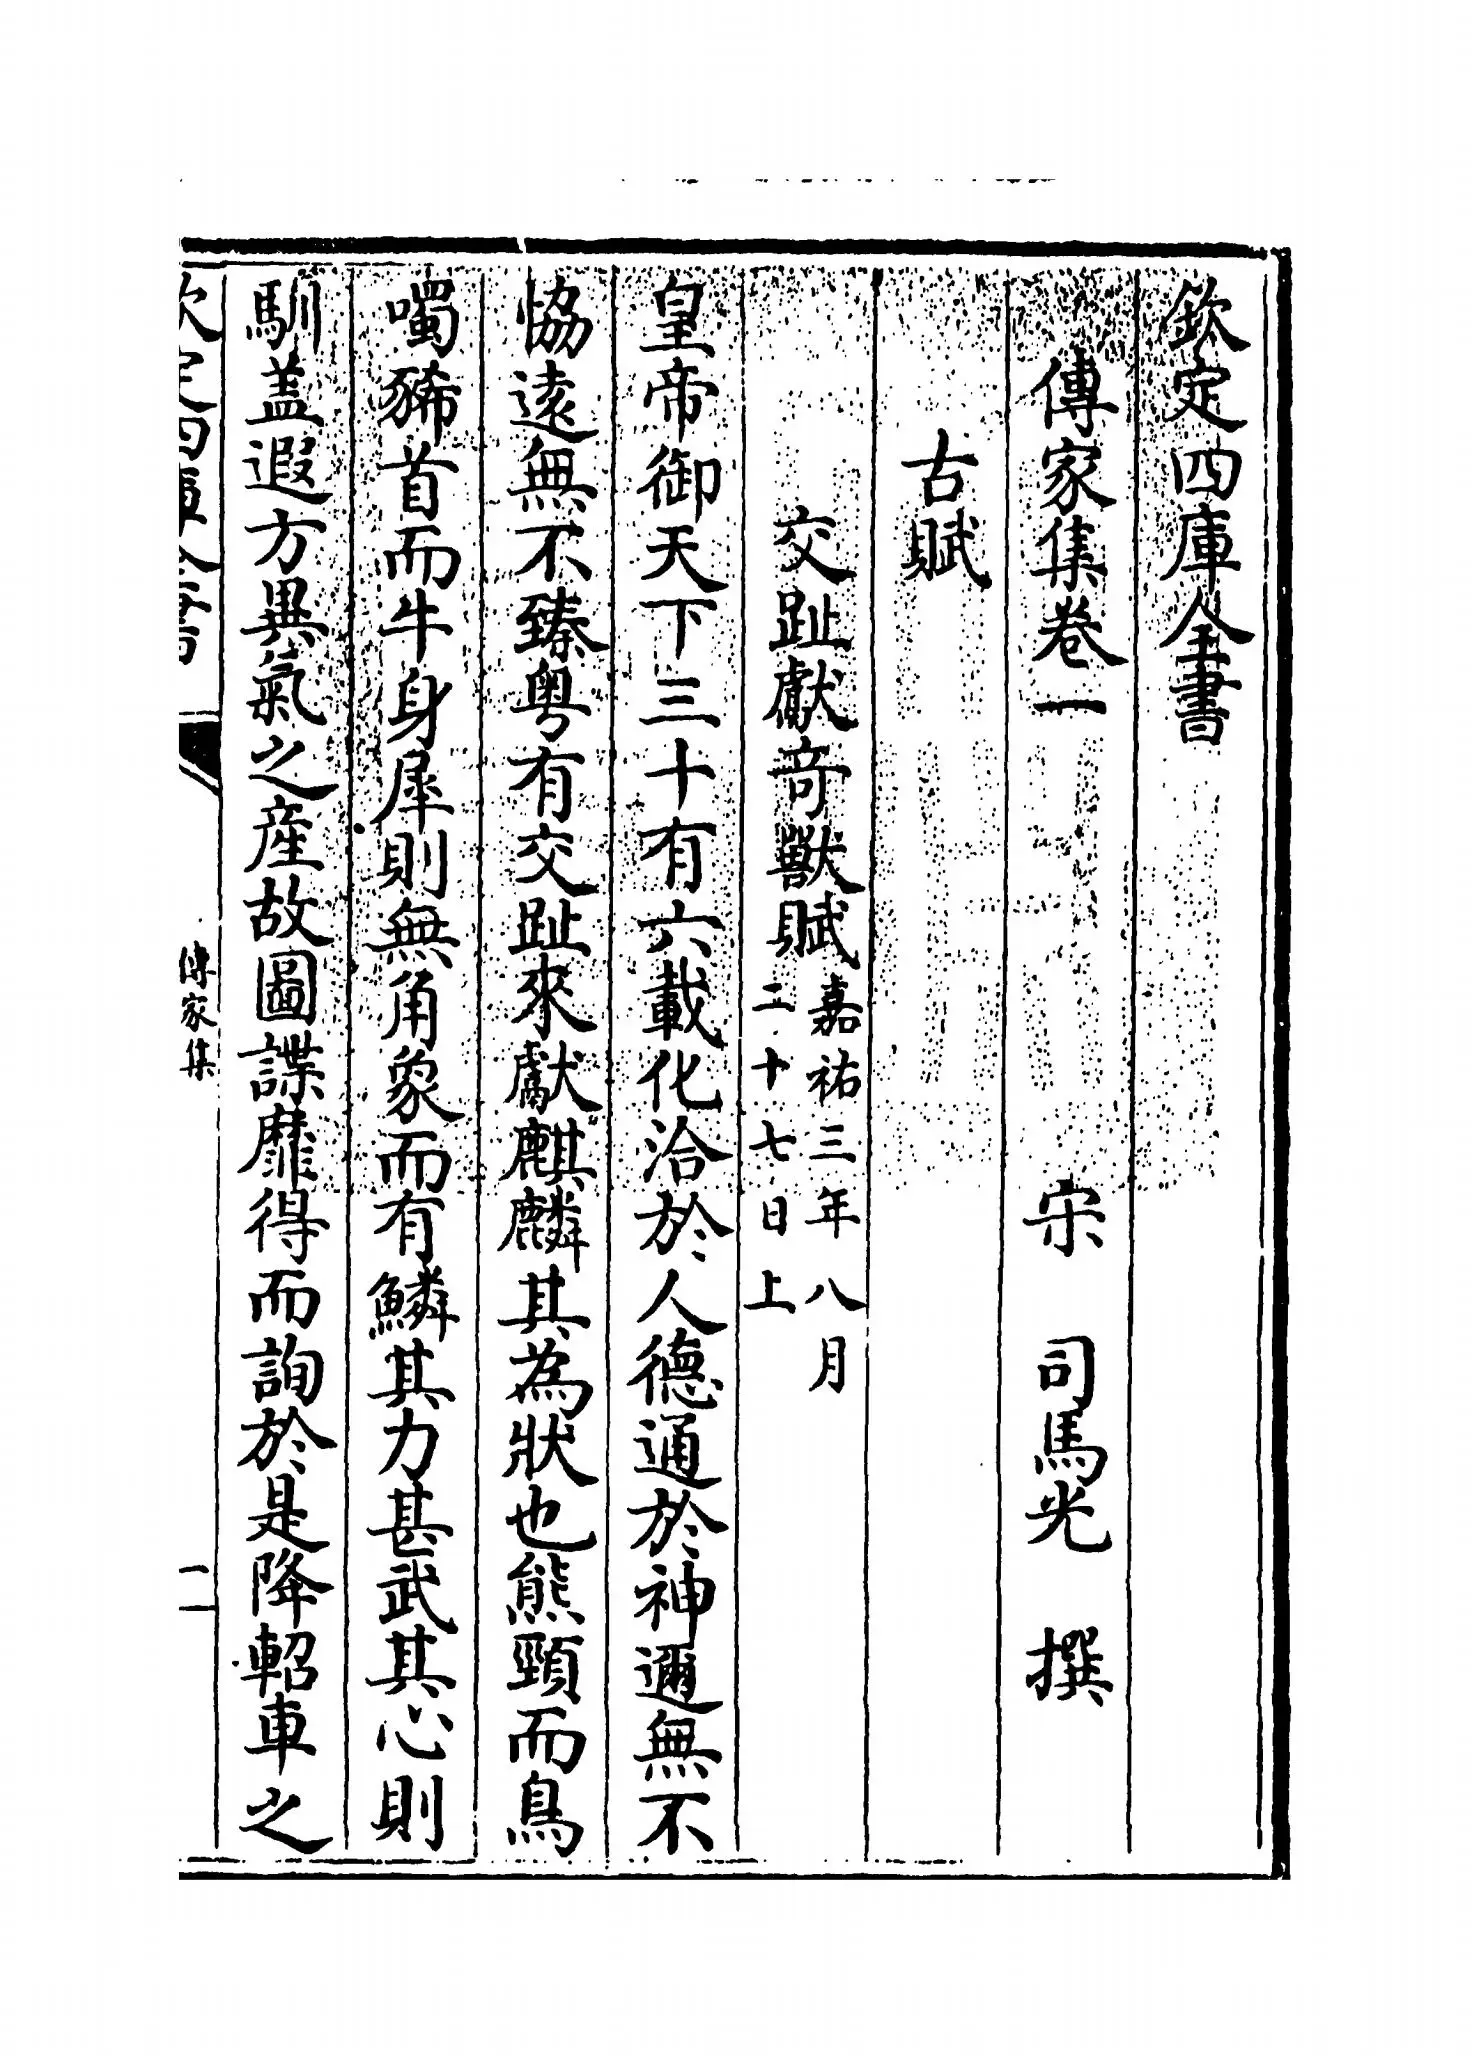 欽定四庫全書
傳家集卷一　宋　司馬光　撰
古賦
交趾獻奇獸賦嘉祐三年八月二十七日上
皇帝御天下三十有六載化洽於人德通於神邇無不
恊逺無不臻粤有交趾來獻麒麟其為狀也熊頸而鳥
噣豨首而牛身犀則無角象而有鱗其力甚武其心則
馴盖遐方異氣之産故圖諜靡得而詢於是降軺車之
欽定四庫全書
傳家集
一